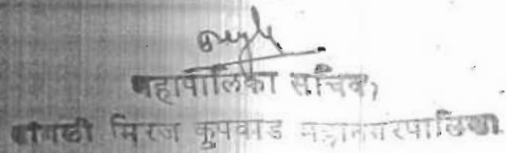 महापालिका सचिव,
सांगली मिरज कुपवाड महानगरपालिका